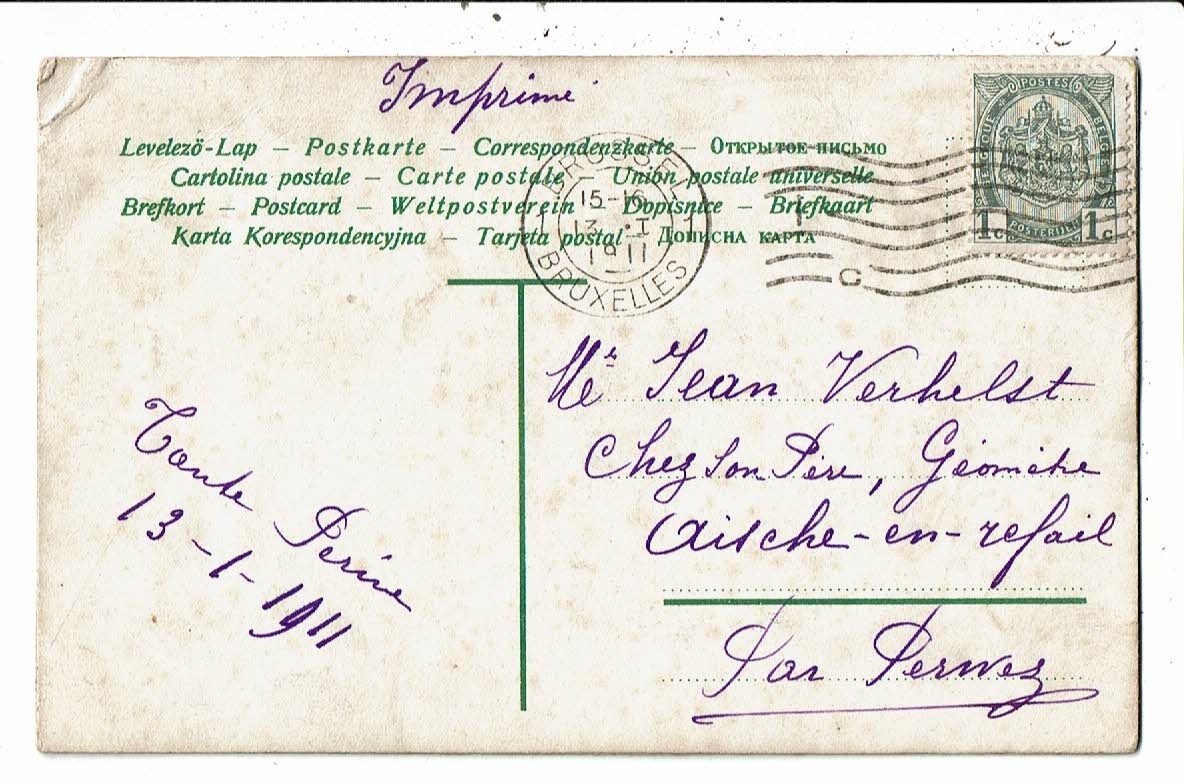 Imprimé
Levelező-Lap — Postkarte — Correspondenzkarte — Открытое письмо
Cartolina postale — Carte postale — Union postale universelle
Brefkort — Postcard — Weltpostverein — Dopisnice — Briefkaart
Karta Korespondencyjna — Tarjeta postal — Дописна карта
BRUSSEL
15-16
13 I
1911
BRUXELLES
POSTES
BELGIQUE
BELGIE
1c
POSTERIJEN
1c
C
Mr Jean Verhelst
Chez Son Père, Géomètre
Aische-en-refail
Par Perwez
Tante Perine
13-1-1911